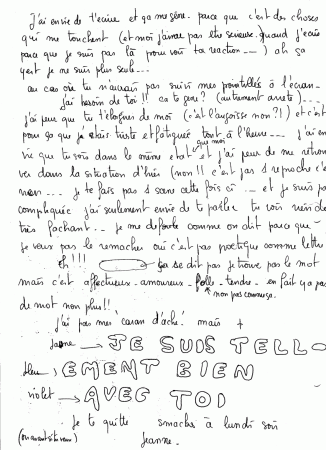 J'ai envie de t'ecrire et ça me gène parce que c'est des choses
qui me touchent (et moi j'aime pas être serieuse. quand j'ecris
parce que je suis pas là pour voir ta reaction ---) ah ça
yest je ne suis plus seule ---
au cas où tu n'aurais pas suivi mes à l'écran -
j'ai besoin de toi !! ca te gene? (autrement arrete) ---
j'ai peur que tu t'éloignes de moi (c'est l'angoisse non?!) et c'est
pour ça que je étais triste et fatiguée tout à l'heure --- j'ai en
vie que tu sois dans le même etat que moi et j'ai peur de me retrou
ver dans la situation d'hier (non!! c'est pas 1 reproche c'est
--- je te fais pas 1 cette fois ci --- et je suis pas
compliquée j'ai seulement envie de te parler tu vois rien de
très fachant -- je me defoule comme on dit parce que
je veux pas le remacher oui c'est pas poetique comme lettre
eh!!! ça se dit pas je trouve pas le mot
mais c'est affectueux - amoureux - folle - tendre - en fait y a pas
non pas
de mot non plus!!
j'ai pas mes "caran d'ache" mais +
jaune → JE SUIS TELL-
bleu → EMENT BIEN
violet → AVEC TOI
Je te quitte smacks à lundi soir
(ou avant si tu veux) Jeanne -